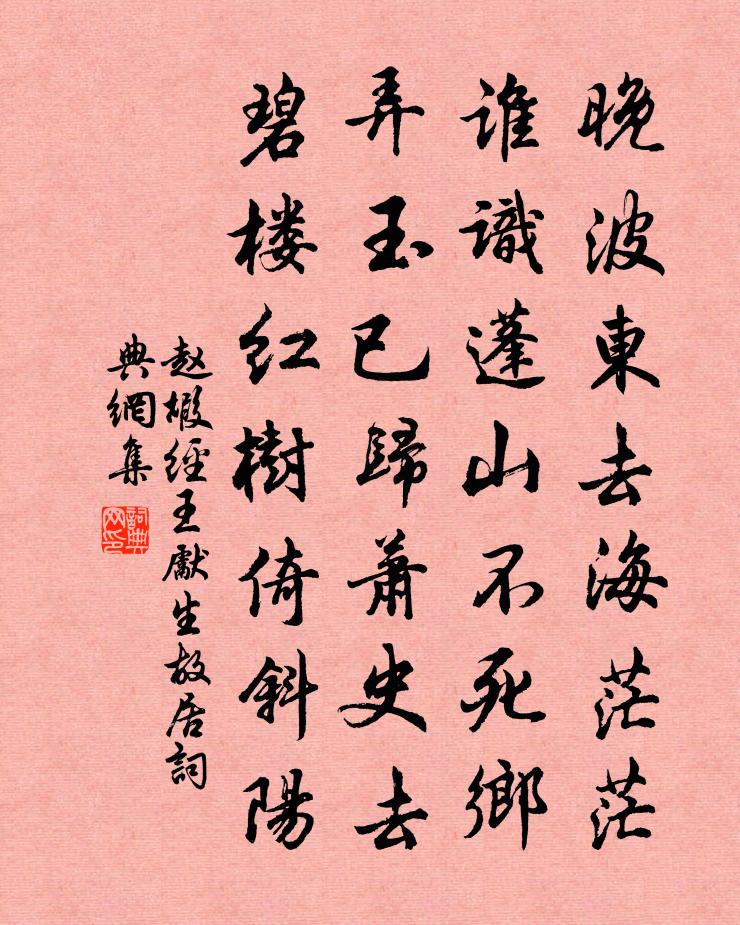 晚波東去海茫茫
谁識蓬山不死鄉
弄玉已歸萧史去
碧楼红樹倚斜陽
赵嘏经王獻生故居詞
典網集
詞典网印